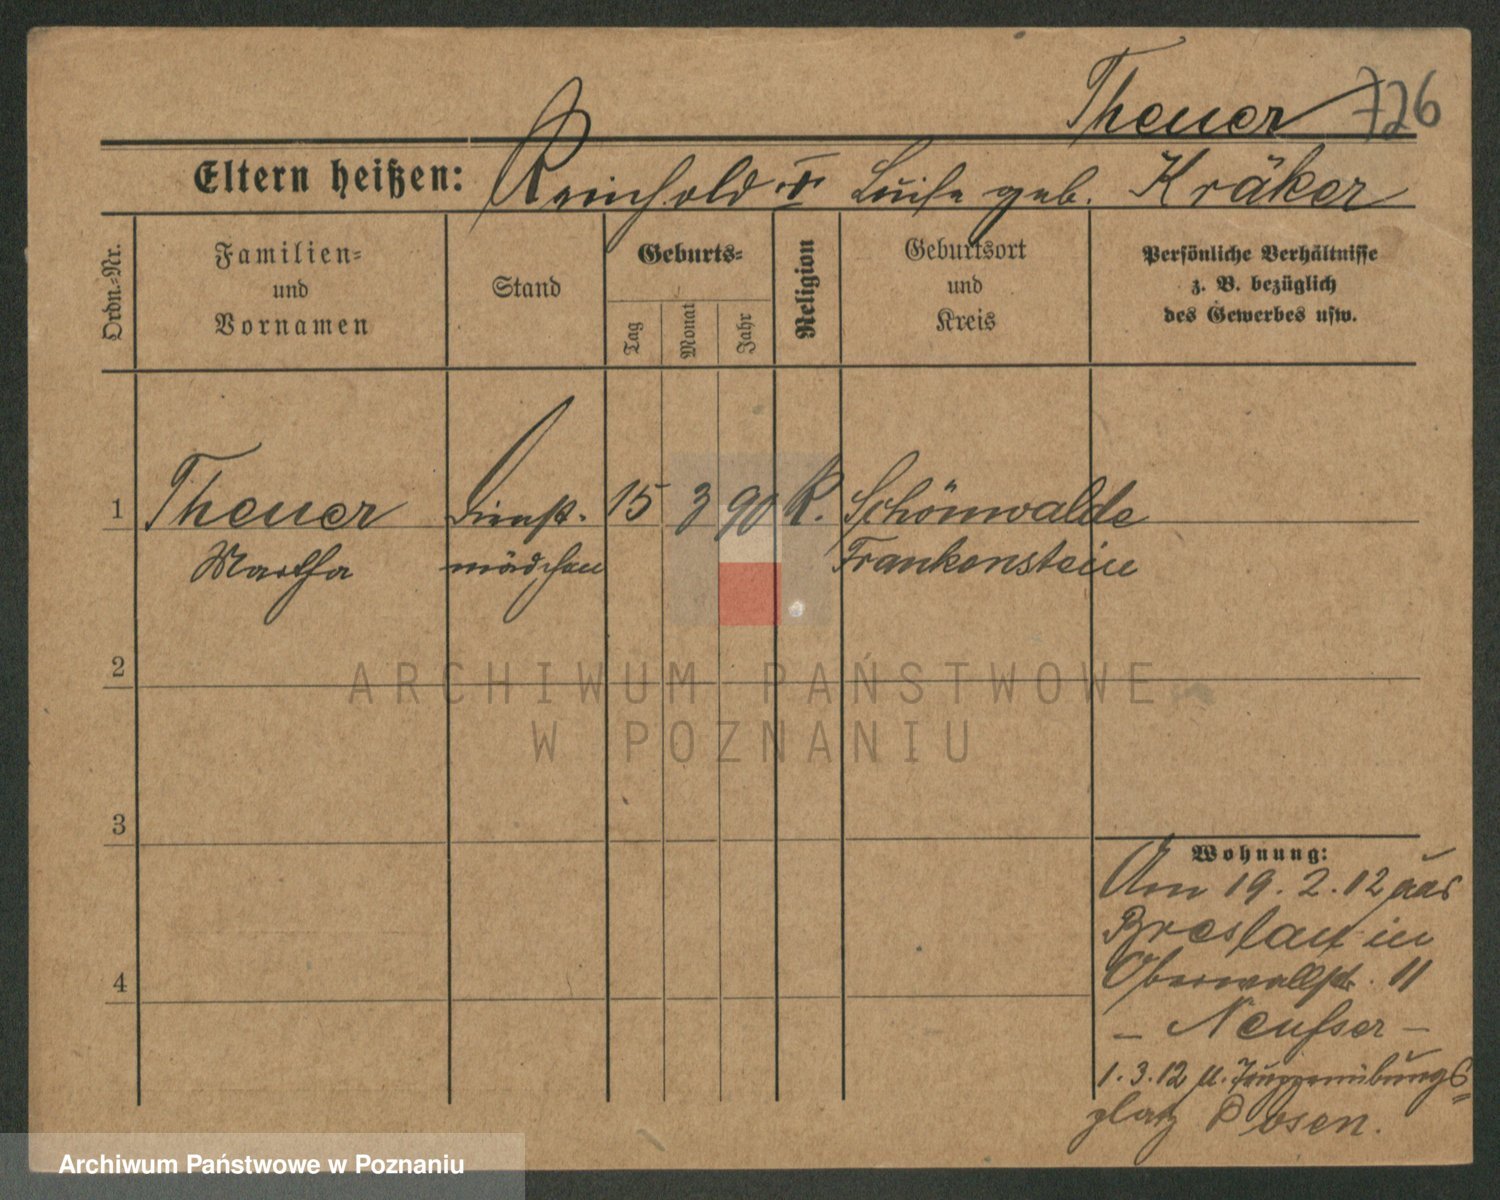 Theuer 726
Eltern heißen: Reinhold u. Luise geb. Kräker
Ordn.=Nr.
Familien=
und
Vornamen
Stand
Geburts=
Tag
Monat
Jahr
Religion
Geburtsort
und
Kreis
Persönliche Verhältnisse
z. B. bezüglich
des Gewerbes usw.
1 Theuer Dienst- 15 3 90 K. Schönwalde
Martha mädchen Frankenstein
2
ARCHIWUM PAŃSTWOWE
W POZNANIU
3
4
Wohnung:
Am 19. 2. 12 aus
Breslau in
Oberwallstr. 11
– Neusser –
1. 3. 12 n. Truppenübungs=
platz Posen.
Archiwum Państwowe w Poznaniu